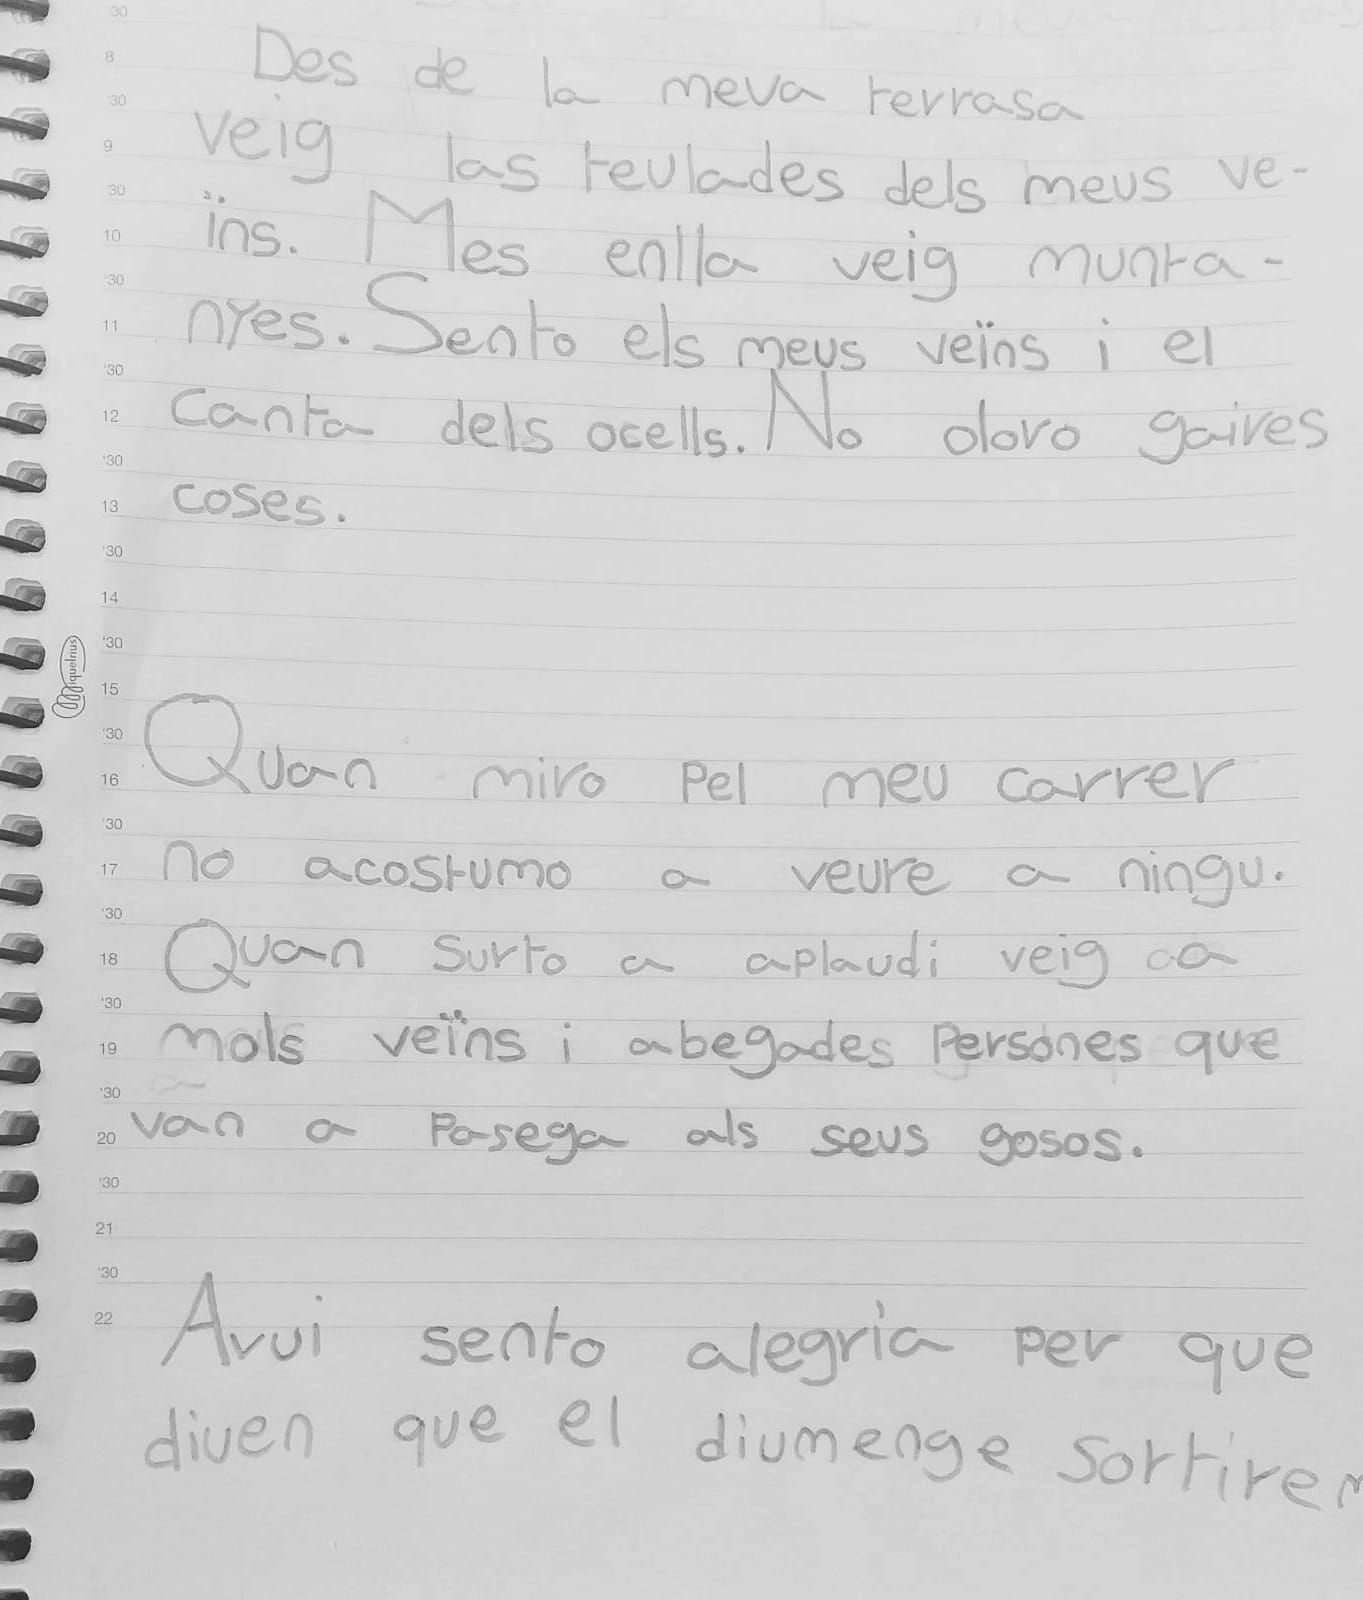 Des de la meva terrasa
veig las teulades dels meus ve-
ïns. Mes enlla veig munta-
nyes. Sento els meus veïns i el
canta dels ocells. No oloro gaires
coses.
Quan miro pel meu carrer
no acostumo a veure a ningu.
Quan surto a aplaudi veig a
mols veïns i abegades persones que
van a pasega als seus gosos.
Avui sento alegrìa per que
diuen que el diumenge sortirem
'30
8
'30
9
'30
10
'30
11
'30
12
'30
13
'30
14
'30
15
'30
16
'30
17
'30
18
'30
19
'30
20
'30
21
'30
22
Miquelrius